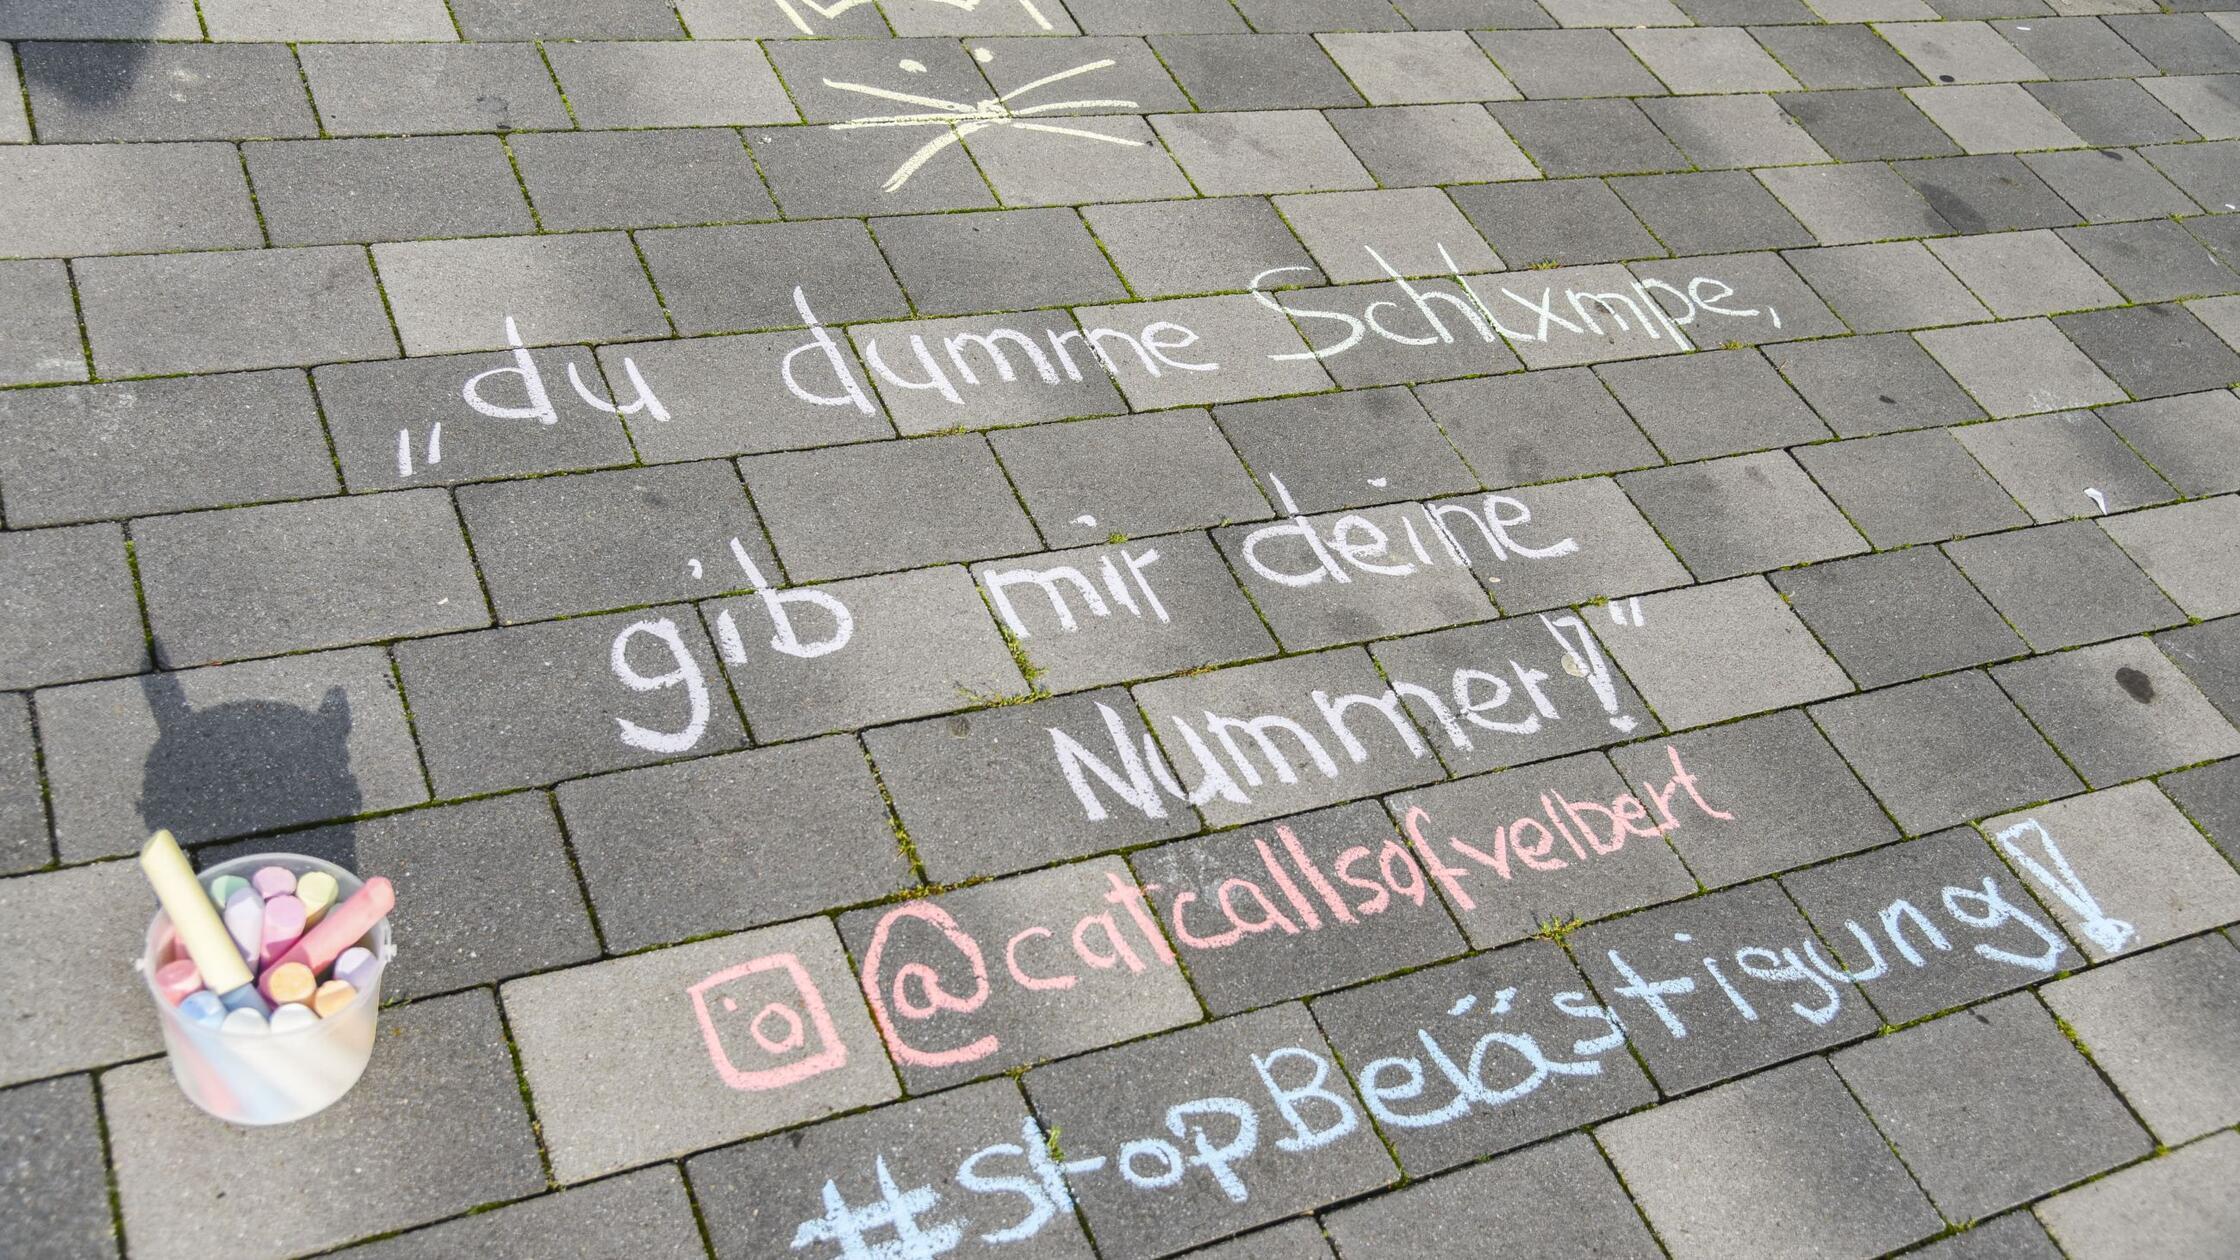 „du dumme Schlxmpe,
gib mir deine
Nummer!"
@catcallsofvelbert
#stopBelästigung!